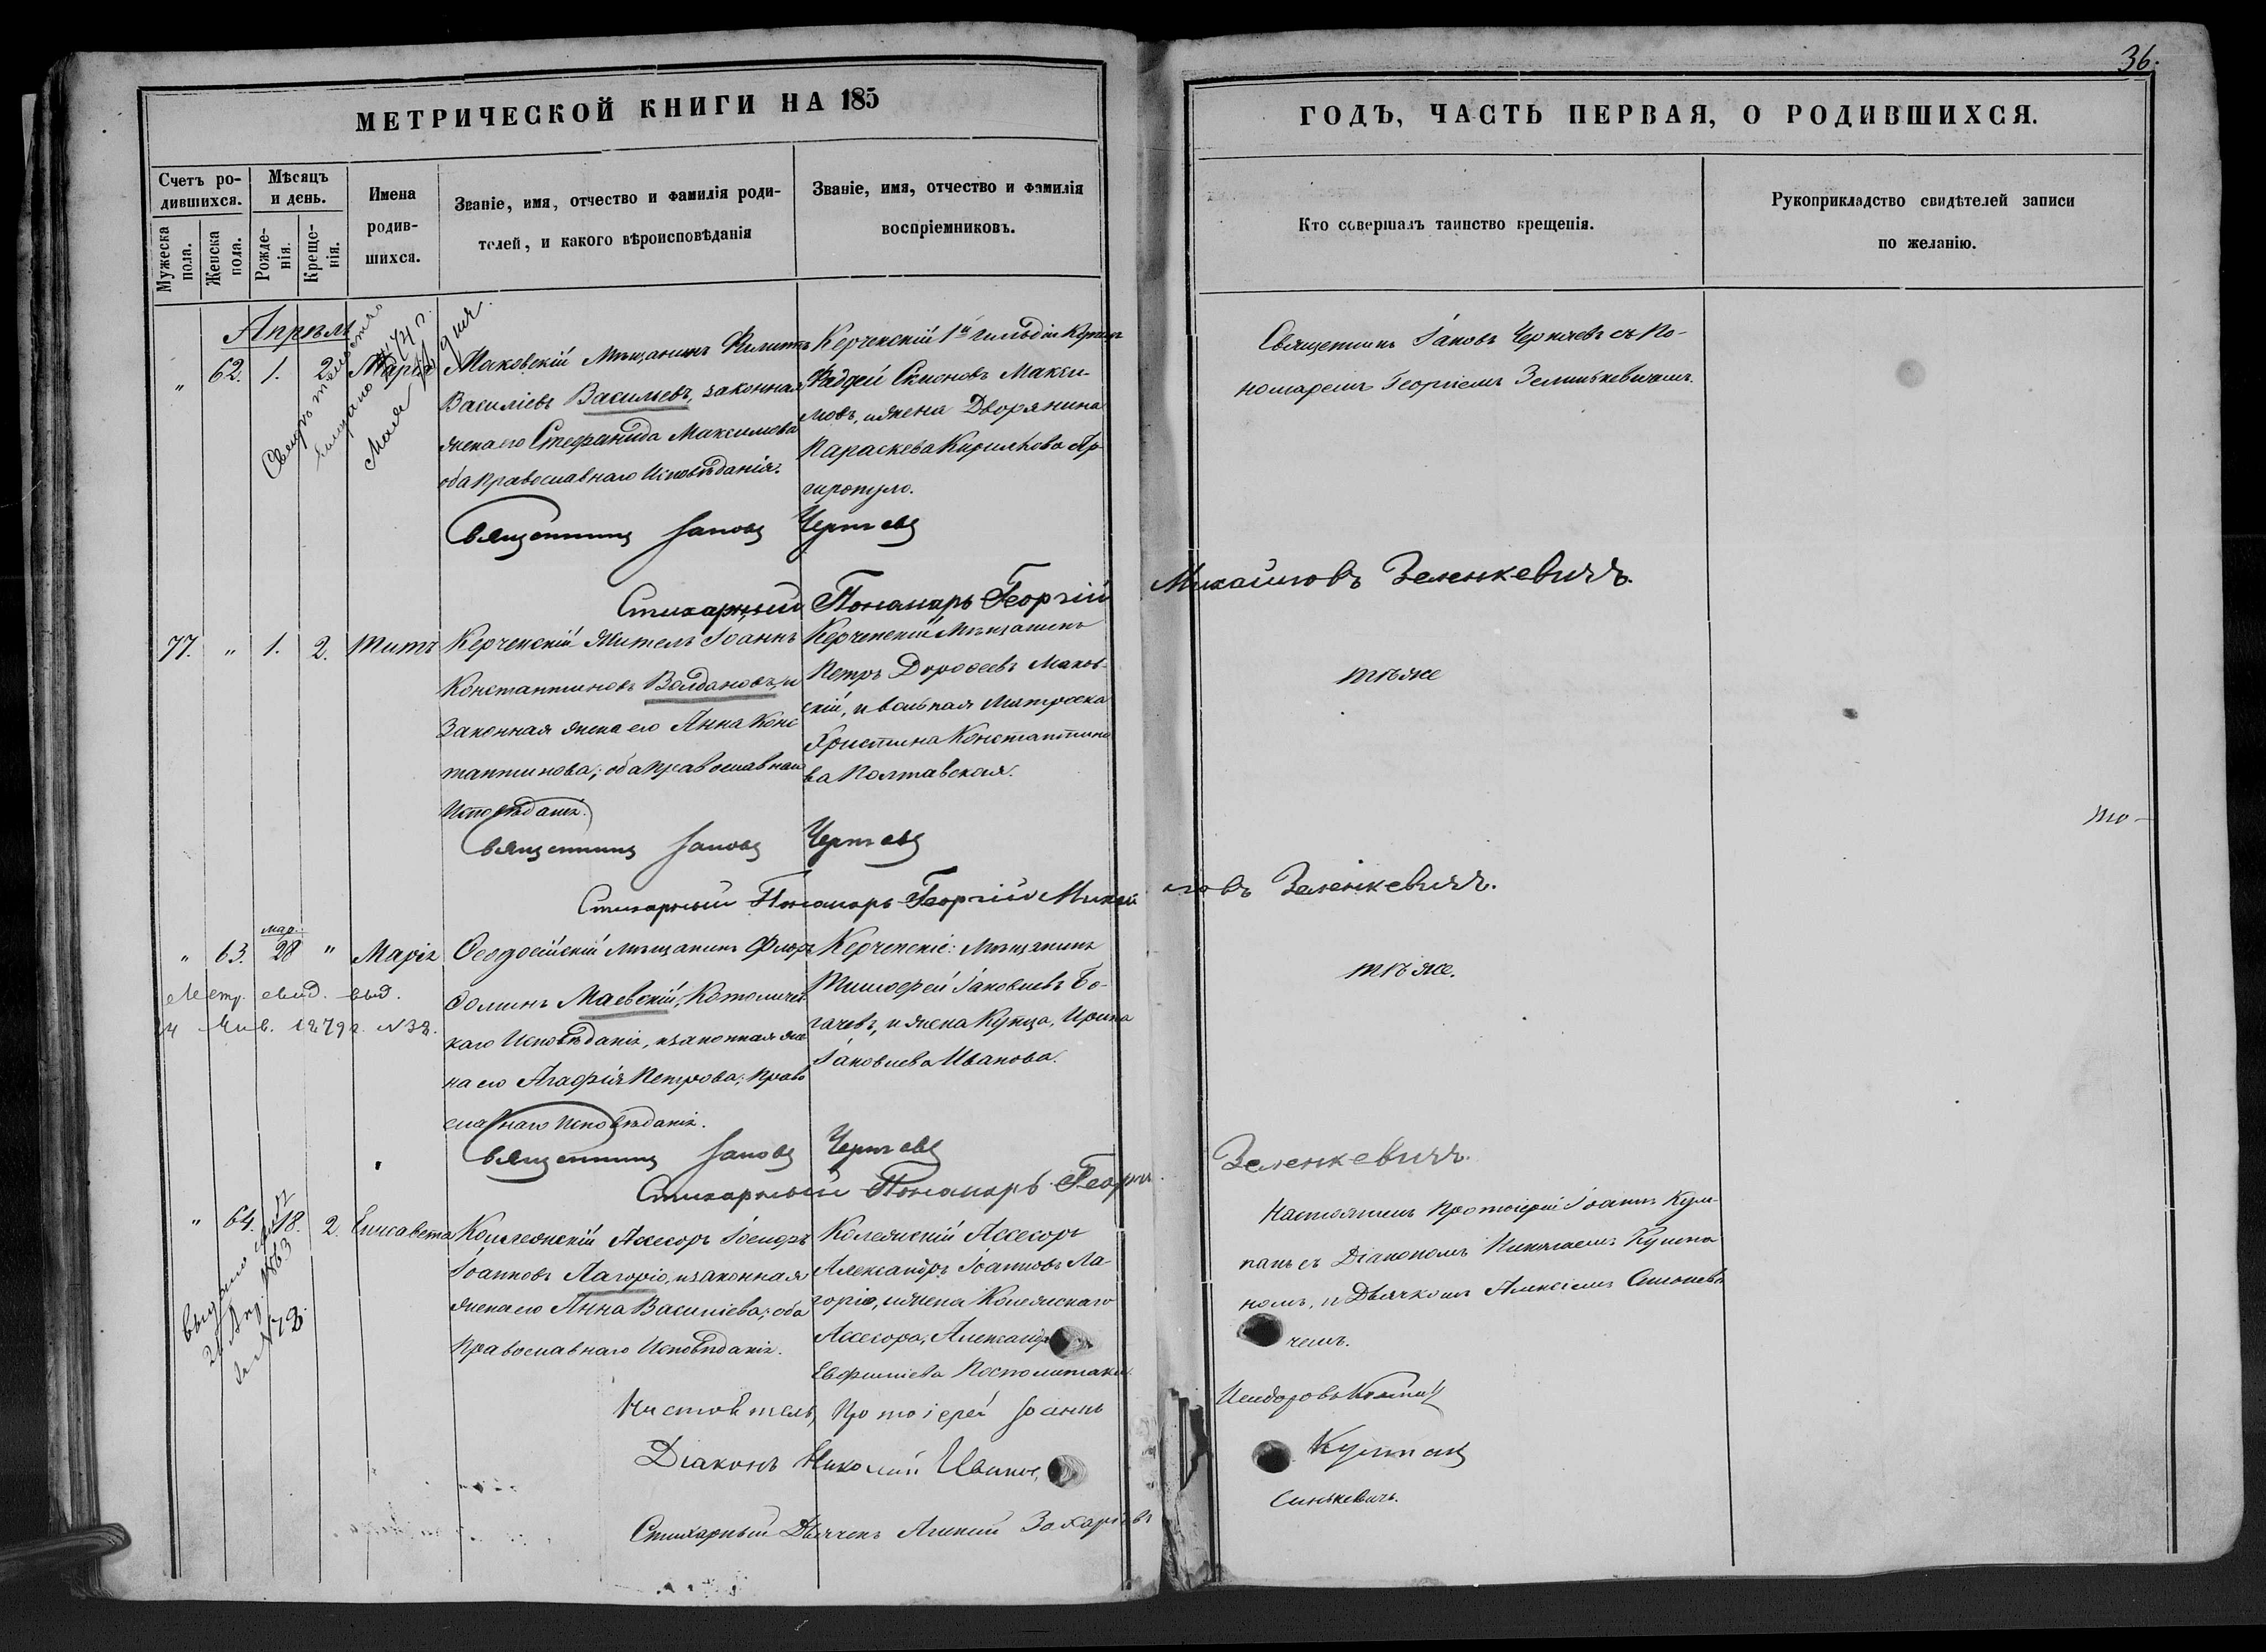 36.
МЕТРИЧЕСКОЙ КНИГИ НА 185
ГОДЪ, ЧАСТЬ ПЕРВАЯ, О РОДИВШИХСЯ.
Счетъ родившихся.
Мужеска пола.
Женска пола.
Мѣсяцъ и день.
Рожденія.
Крещенія.
Имена родившихся.
Званіе, имя, отчество и фамилія родителей, и какого вѣроисповѣданія
Званіе, имя, отчество и фамилія воспріемниковъ.
Кто совершалъ таинство крещенія.
Рукоприкладство свидѣтелей записи по желанію.
Апрѣль
„ 62. 1. 2. Марія
Маковскій Мѣщанинъ Филиппъ
Василіевъ Васильевъ, законная
жена его Стефанида Максимова
оба православнаго Исповѣданія.
Керченскій 1й гильдіи Купецъ
Фаддей Симоновъ Макси-
мовъ, и жена Дворянина
Параскева Кирилкова Ар-
гиропуло.
Священникъ Іаковъ Черняевъ съ По-
номаремъ Георгіемъ Зеленкевичемъ.
Священникъ Іаковъ Черняевъ
Стихарный Пономарь Георгій Михайловъ Зеленкевичъ.
77. „ 1. 2. Титъ
Керченскій Житель Іоаннъ
Константиновъ Волдановъ, и
Законная жена его Анна Конс
тантинова; оба православнаго
Исповѣданія.
Керченскій Мѣщанинъ
Петръ Дороѳеевъ Маков-
скій, и вольная Матроска
Христина Константино
ва Полтавская.
тѣже
Священникъ Іаковъ Черняевъ
Стихарный Пономарь Георгій Михайловъ Зеленкевичъ.
„ 63. мар. 28 „ Марія
Метр. свид. выд.
Янв. 1879 г. №32.
Ѳеодосійскій мѣщанинъ Флоръ
Маевскій, Католичес
каго Исповѣданія, и законная же
на его Агафія Петрова; право
славнаго Исповѣданія.
Керченскіе: Мѣщанинъ
Тимоѳей Іаковлевъ Бо-
гачевъ, и жена Купца, Ирина
Іаковлева Иванова.
тѣже.
Священникъ Іаковъ Черняевъ
Стихарный Пономарь Георгій Зеленкевичъ.
„ 64. 18. 2. Елисавета
Выдано
1863
Коллежскій Ассесоръ
Іоанновъ Лагоріо, и законная
жена его Анна Василіева; оба
Православнаго Исповѣданія.
Колежскій Ассесоръ
Александръ Іоанновъ Ла
горіо, и жена Колежскаго
Ассесора, Александра
Евфиміева
Настоятель Протоіерей Іоаннъ Кум-
панъ съ Діакономъ Николаемъ
номъ, и Дьячкомъ Алексіемъ
чемъ.
Настоятель, Протоіерей Іоаннъ
Діаконъ Николай
Стихарный Дьячекъ Алексій Захаріевъ Синькевичъ.